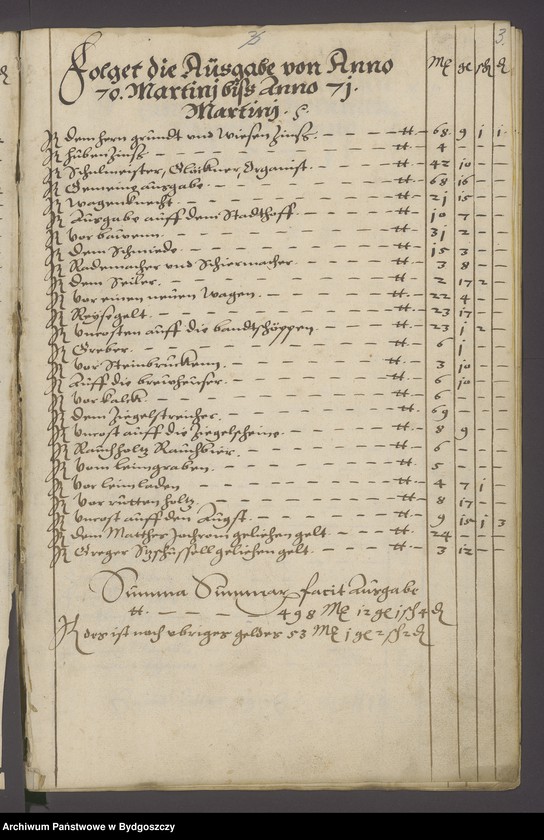 3.
Folget die Ausgabe von Anno
70. Martinj biss Anno 71.
Martinj. 5.
Mk gr sch d
It dem hern grundt und wiesen Zinss. — — — — tt — 68 9 1 1
It hubenZinss — — — — tt — 4 — — —
It Schulmeister, Glöckner, Organist. — — — tt — 42 10 — —
It Gemeine ausgabe — — — — tt — 68 16 — —
It Wagenknecht — — — — tt — 21 15 — —
It Ausgabe auff dem Stadthoff. — — — tt — 10 7 — —
It vor bauenn — — — — tt — 31 2 — —
It dem Schmiede — — — — tt — 15 3 — —
It Rademacher und Schirmacher — — — tt — 3 8 — —
It dem Seiler — — — — tt — 2 17 2 —
It vor einen neuen wagen — — — — tt — 22 4 — —
It Reysegelt — — — — tt — 23 17 — —
It Uncosten auff die landtschöppen — — — tt — 23 1 2 —
It Greber — — — — tt — 6 1 — —
It vor Steinbruckenn — — — — tt — 3 10 — —
It auff die breuheuser — — — — tt — 6 10 — —
It vor kalck — — — — tt — 6 — — —
It dem Ziegelstreicher — — — — tt — 69 — — —
It Uncost auff die Ziegelscheine — — — tt — 8 9 — —
It Rauchholtz Rauchbier — — — — tt — 6 — — —
It vom leimgraben — — — — tt — 5 — — —
It vor leimladen — — — — tt — 4 7 1 —
It vor rutten holtz — — — — tt — 8 17 — —
It Uncost auff den Augst — — — — tt — 9 15 1 3
It dem Matthes geliehen gelt — — tt — 24 — — —
It Greger geliehen gelt — — — tt — 3 12 — —
Summa Summar facit Ausgabe
tt — — — — 498 Mk 12 gr 1 sch 4 d
It des ist noch ubriges geldes 53 Mk 1 gr 2 sch 2 d
Archiwum Państwowe w Bydgoszczy